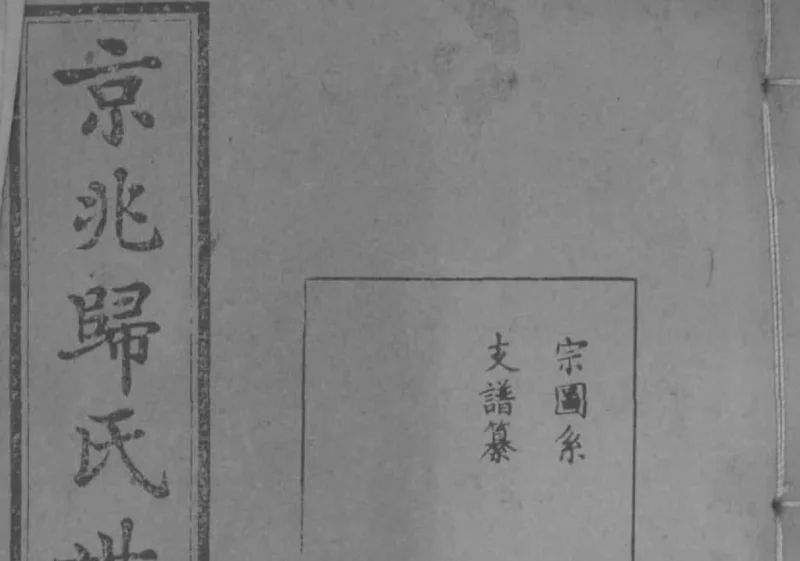 宗圖系
支譜纂
京兆歸氏世